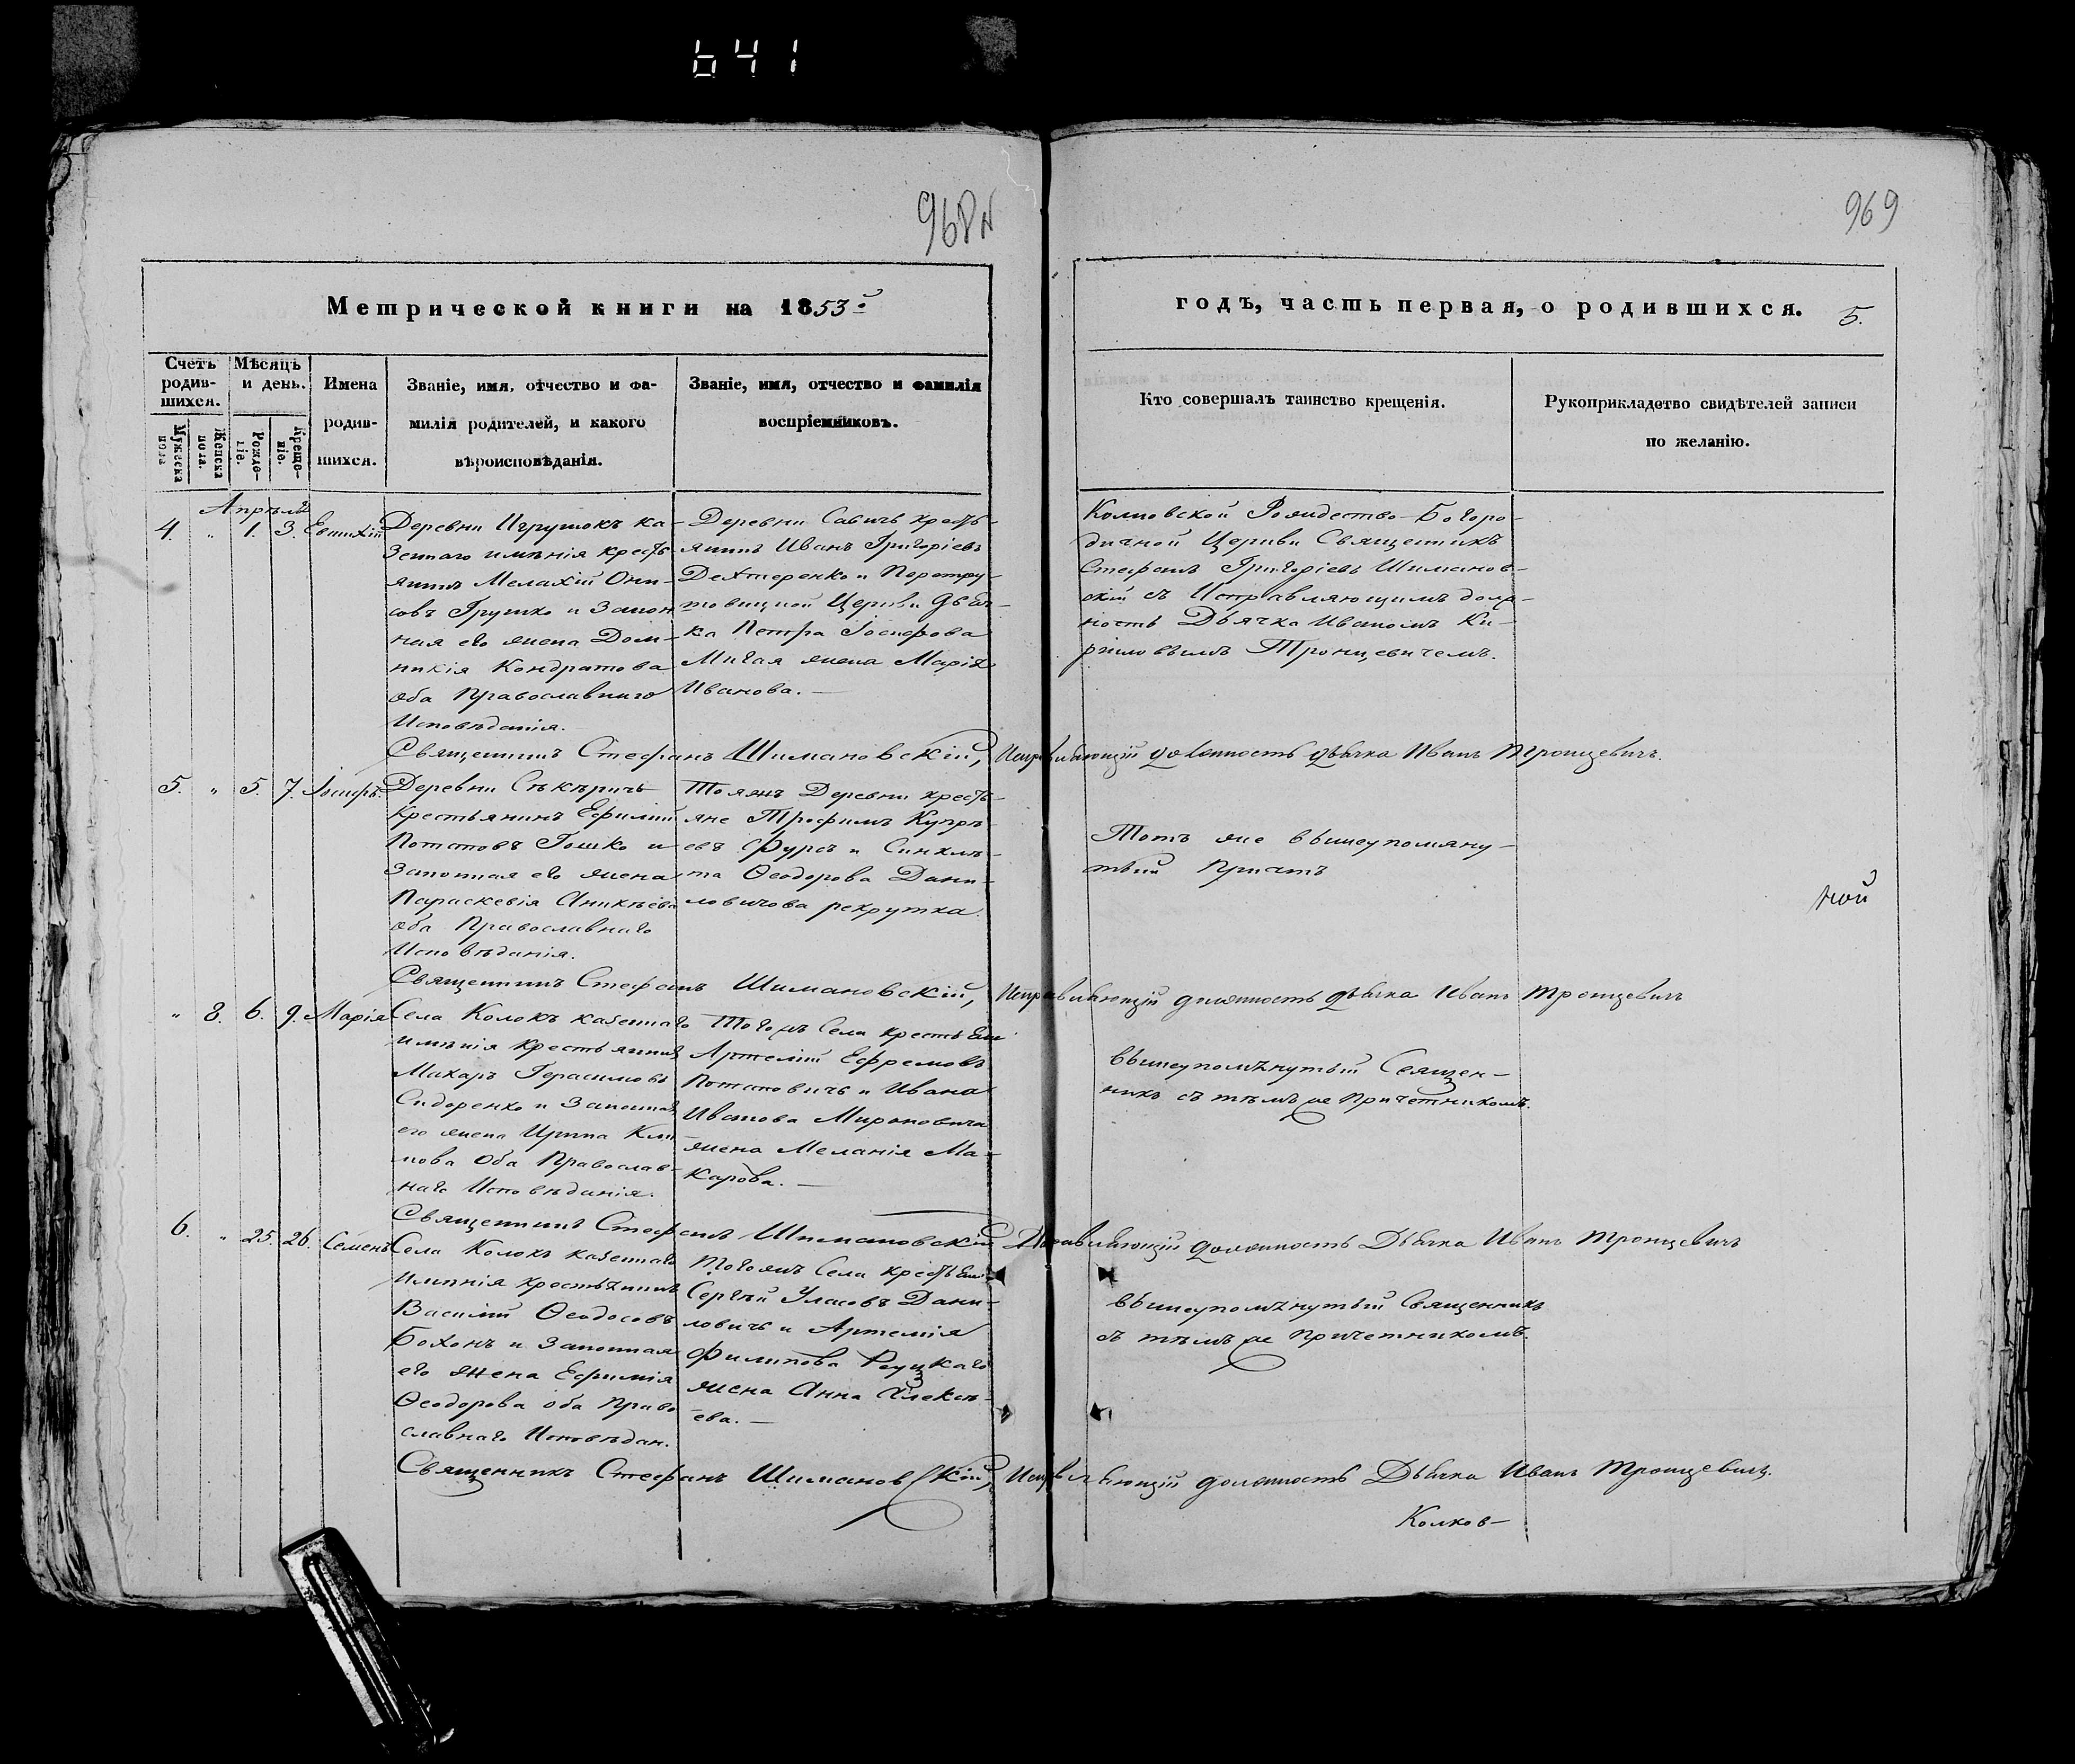 641
968
969
Метрической книги на 1853й
годъ, часть первая, о родившихся. 5.
Счетъ родив-шихся.
Мѣсяцъ и день.
Имена родив-шихся.
Званіе, имя, отчество и фа-
милія родителей, и какого
вѣроисповѣданія.
Званіе, имя, отчество и фамилія
воспріемниковъ.
Кто совершалъ таинство крещенія.
Рукоприкладство свидѣтелей записи
по желанію.
Мужеска пола.
Женска пола.
Рожде-ніе.
Креще-ніе.
Апрѣль
4. " 1. 3. Евтихій
Деревни Игрушокъ ка-
зеннаго имѣнія кресть-
янинъ Мелахій Они-
совъ Грушко и Закон
ная его жена Дом-
никія Кондратова
оба Православнаго
Исповѣданія.
Деревни Савичь кресть-
янинъ Иванъ Григоріевъ
Дехтеренко и
Церкви Дьяч-
ка Петра Іосифова
Мигая жена Марія
Иванова.
Рождество-Богоро-
дичной Церкви Священникъ
Стефанъ Григоріевъ Шиманов-
скій съ Исправляющимъ долж-
ность Дьячка Иваномъ Ки-
риловымъ Тронцевичемъ.
Священникъ Стефанъ Шимановскій, Исправляющій должность дьячка Иванъ Тронцевичъ.
5. " 5. 7. Іосифъ
Деревни Сѣкѣричь
Крестьянинъ Ефимій
Потаповъ Гошко и
Законная его жена
Параскевія Аникѣева
оба Православнаго
Исповѣданія.
Тояжъ Деревни кресть-
яне Трофимъ Купрѣ-
евъ Фурсъ и Синклѣ-
та Ѳеодорова Дани-
ловичова рекрутка.
Тотъ же вышеупомяну-
тый Причтъ
ной
Священникъ Стефанъ Шимановскій, Исправляющій должность дьячка Иванъ Тронцевичъ
" 8. 6. 9. Марія
Села Колокъ казеннаго
имѣнія Крестьянинъ
Макаръ Герасимовъ
Сидоренко и Законная
его жена Ирина Кли
мова Оба Православ-
наго Исповѣданія.
Тогожъ Села крестьян
Артемій Ефремовъ
Потаповичъ и Ивана
Иванова Мироновича
жена Меланія Ма-
карова.
вышеупомянутый Священ-
никъ съ тѣмъ же Причетникомъ.
Священникъ Стефанъ Шимановскій Исправляющій должность Дьячка Иванъ Тронцевичъ
6. " 25. 26. Семенъ
Села Колокъ казеннаго
Имѣнія крестьянинъ
Василій Ѳеодосовъ
Боханъ и Законная
его жена Ефимія
Ѳеодорова оба Право
славнаго Исповѣдан.
Тогожъ Села крестьян
Сергѣй Уласовъ Дани-
ловичъ и Артемія
Филипова Реуцкаго
жена Анна Алексѣ-
ева.
вышеупомянутый Священникъ
съ тѣмъ же Причетникомъ.
Священникъ Стефанъ Шимановскій, Исправляющій должность Дьячка Иванъ Тронцевичъ.
Колков-